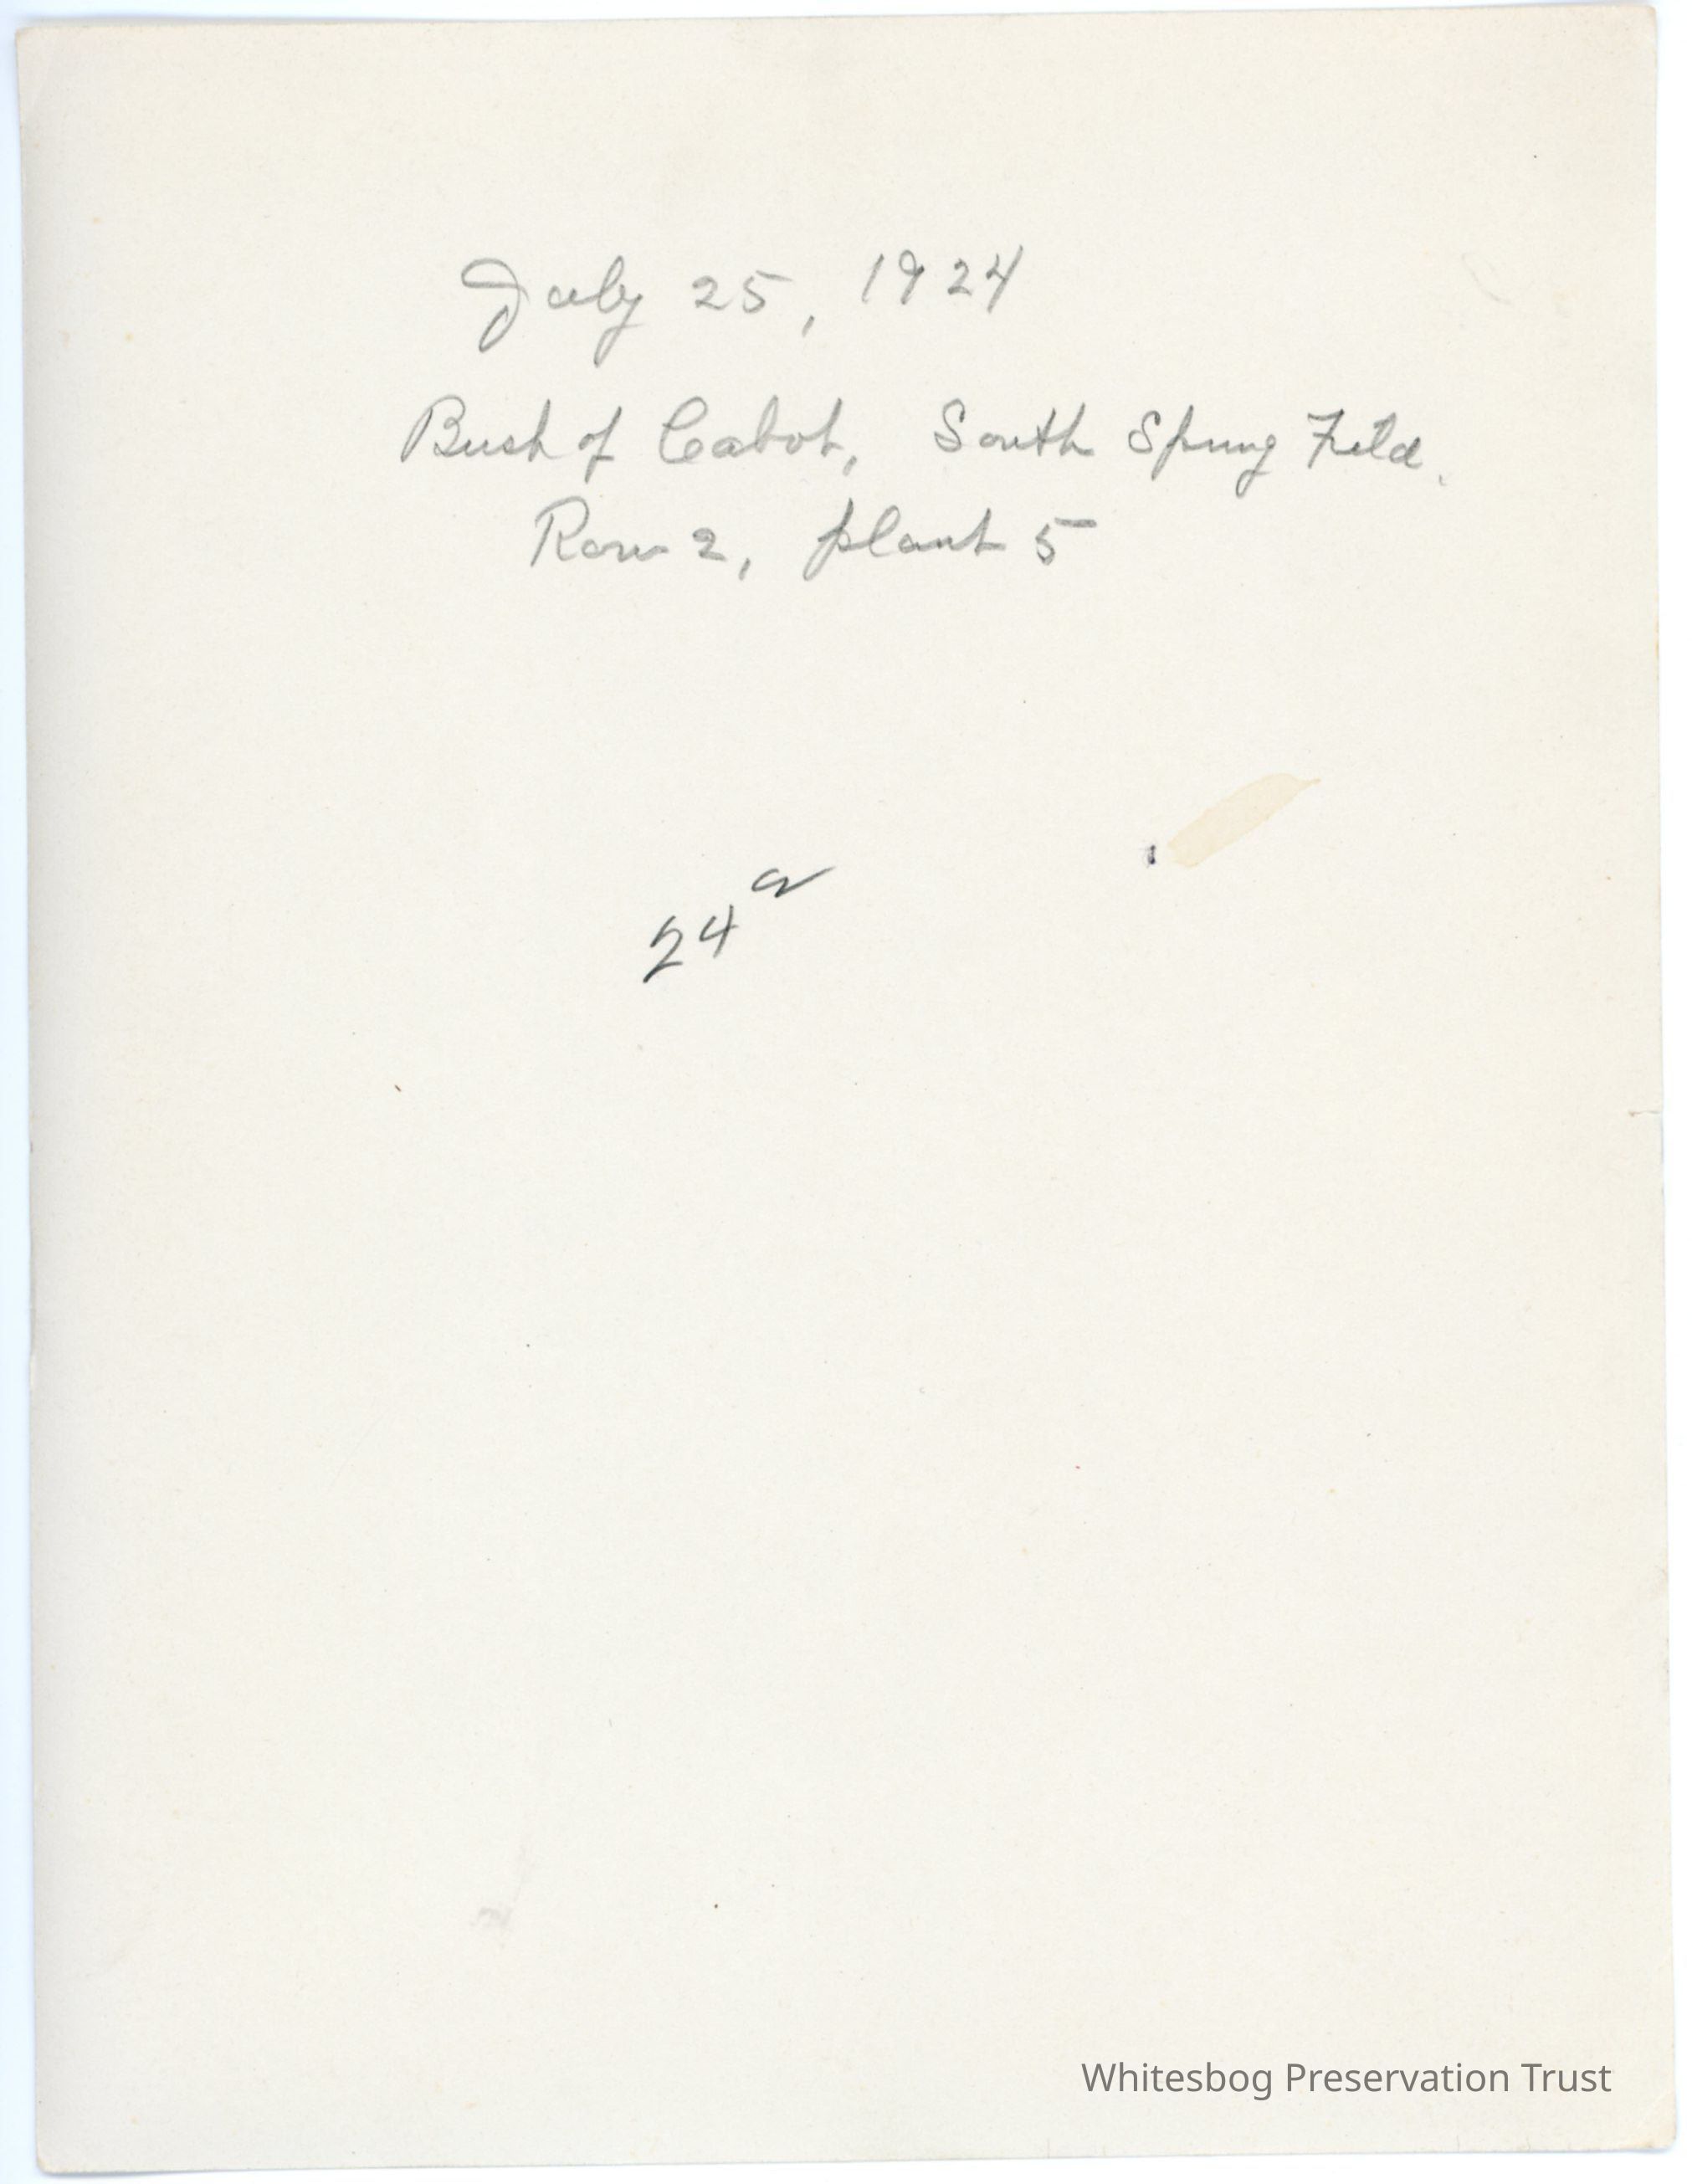 July 25, 1924
Bush of Cabot, South Spring Field.
Row 2, plant 5
24a
Whitesbog Preservation Trust